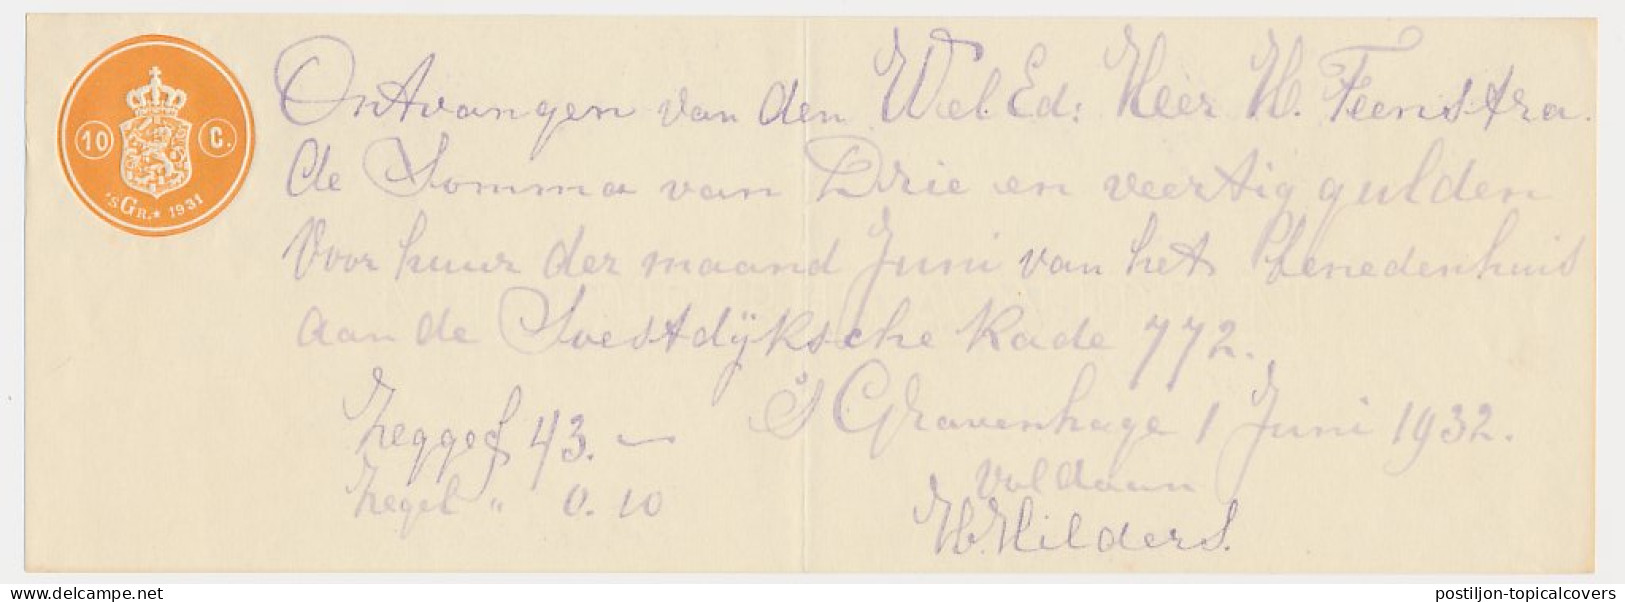 10 C.
'SGR.* 1931
Ontvangen van den Wel. Ed: Heer H. Feenstra.
de Somma van Drie en veertig gulden
Voor huur der maand Juni van het benedenhuis
aan de Soestdijksche Kade 772.
S Gravenhage 1 Juni 1932.
Zegge f 43. —
Zegel " 0.10
Voldaan
H. Hilders.
delcampe.net
postiljon-topicalcovers